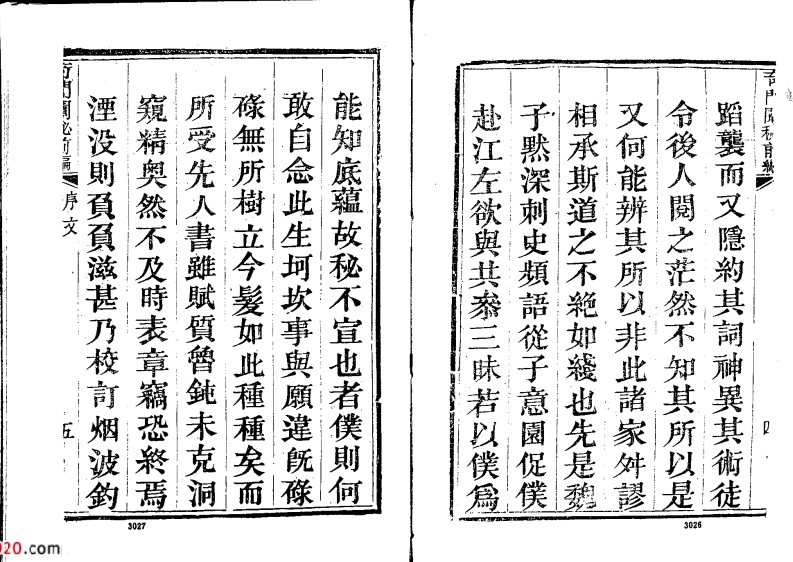 蹈襲而又隱約其詞神異其術徒
令後人閱之茫然不知其所以是
又何能辨其所以非此諸家舛謬
相承斯道之不絕如綫也先是魏
子默深刺史頻語從子意園促僕
赴江左欲與共叅三昧若以僕爲
四
3026
能知底蘊故秘不宣也者僕則何
敢自念此生坷坎事與願違旣碌
碌無所樹立今髮如此種種矣而
所受先人書雖賦質魯鈍未克洞
窺精奧然不及時表章竊恐終焉
湮没則負負滋甚乃校訂烟波釣
序文
五
3027
020.com